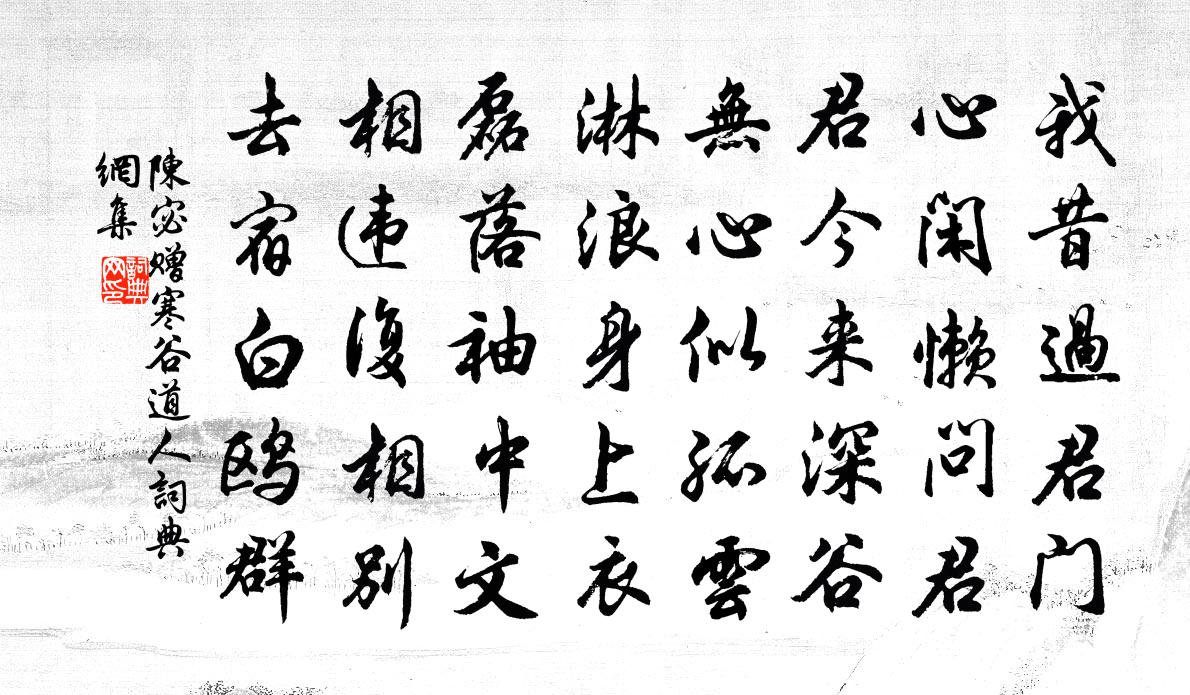 我昔過君门
心闲懒问君
君今来深谷
無心似孤雲
淋浪身上衣
磊落袖中文
相违復相别
去宿白鸥群
陳宓赠寒谷道人詞典
網集
詞典